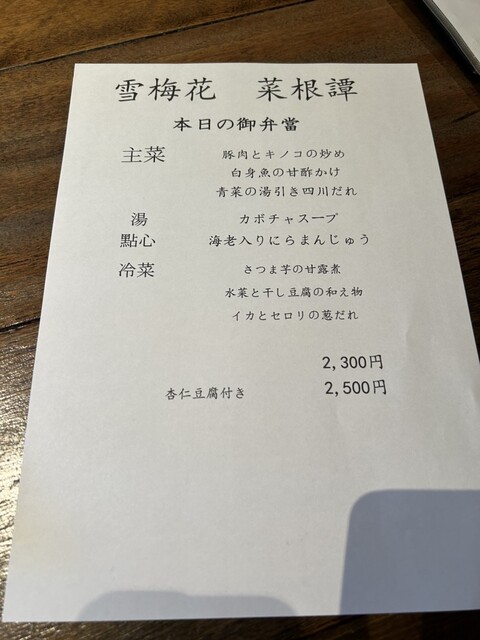 雪梅花　菜根譚
本日の御弁當
主菜　豚肉とキノコの炒め
白身魚の甘酢かけ
青菜の湯引き四川だれ
湯　カボチャスープ
點心　海老入りにらまんじゅう
冷菜　さつま芋の甘露煮
水菜と干し豆腐の和え物
イカとセロリの葱だれ
2,300円
杏仁豆腐付き　2,500円